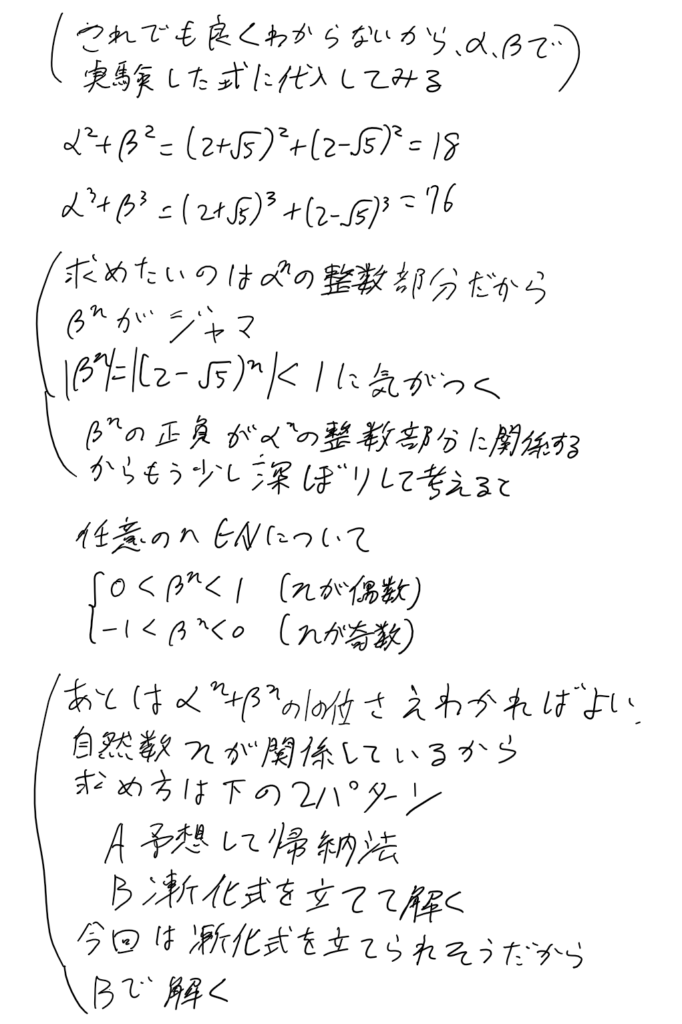 (これでも良くわからないから、α、βで
実験した式に代入してみる)
α²+β²=(2+√5)²+(2-√5)²=18
α³+β³=(2+√5)³+(2-√5)³=76
(求めたいのはαⁿの整数部分だから
βⁿがジャマ
|βⁿ|=|(2-√5)ⁿ|<1に気がつく
βⁿの正負がαⁿの整数部分に関係する
からもう少し深ぼりして考えると
任意のn∈Nについて
{0<βⁿ<1 (nが偶数)
-1<βⁿ<0 (nが奇数)
(あとはαⁿ+βⁿの10位さえわかればよい.
自然数nが関係しているから
求め方は下の2パターン
A 予想して帰納法
B 漸化式を立てて解く
今回は漸化式を立てられそうだから
Bで解く